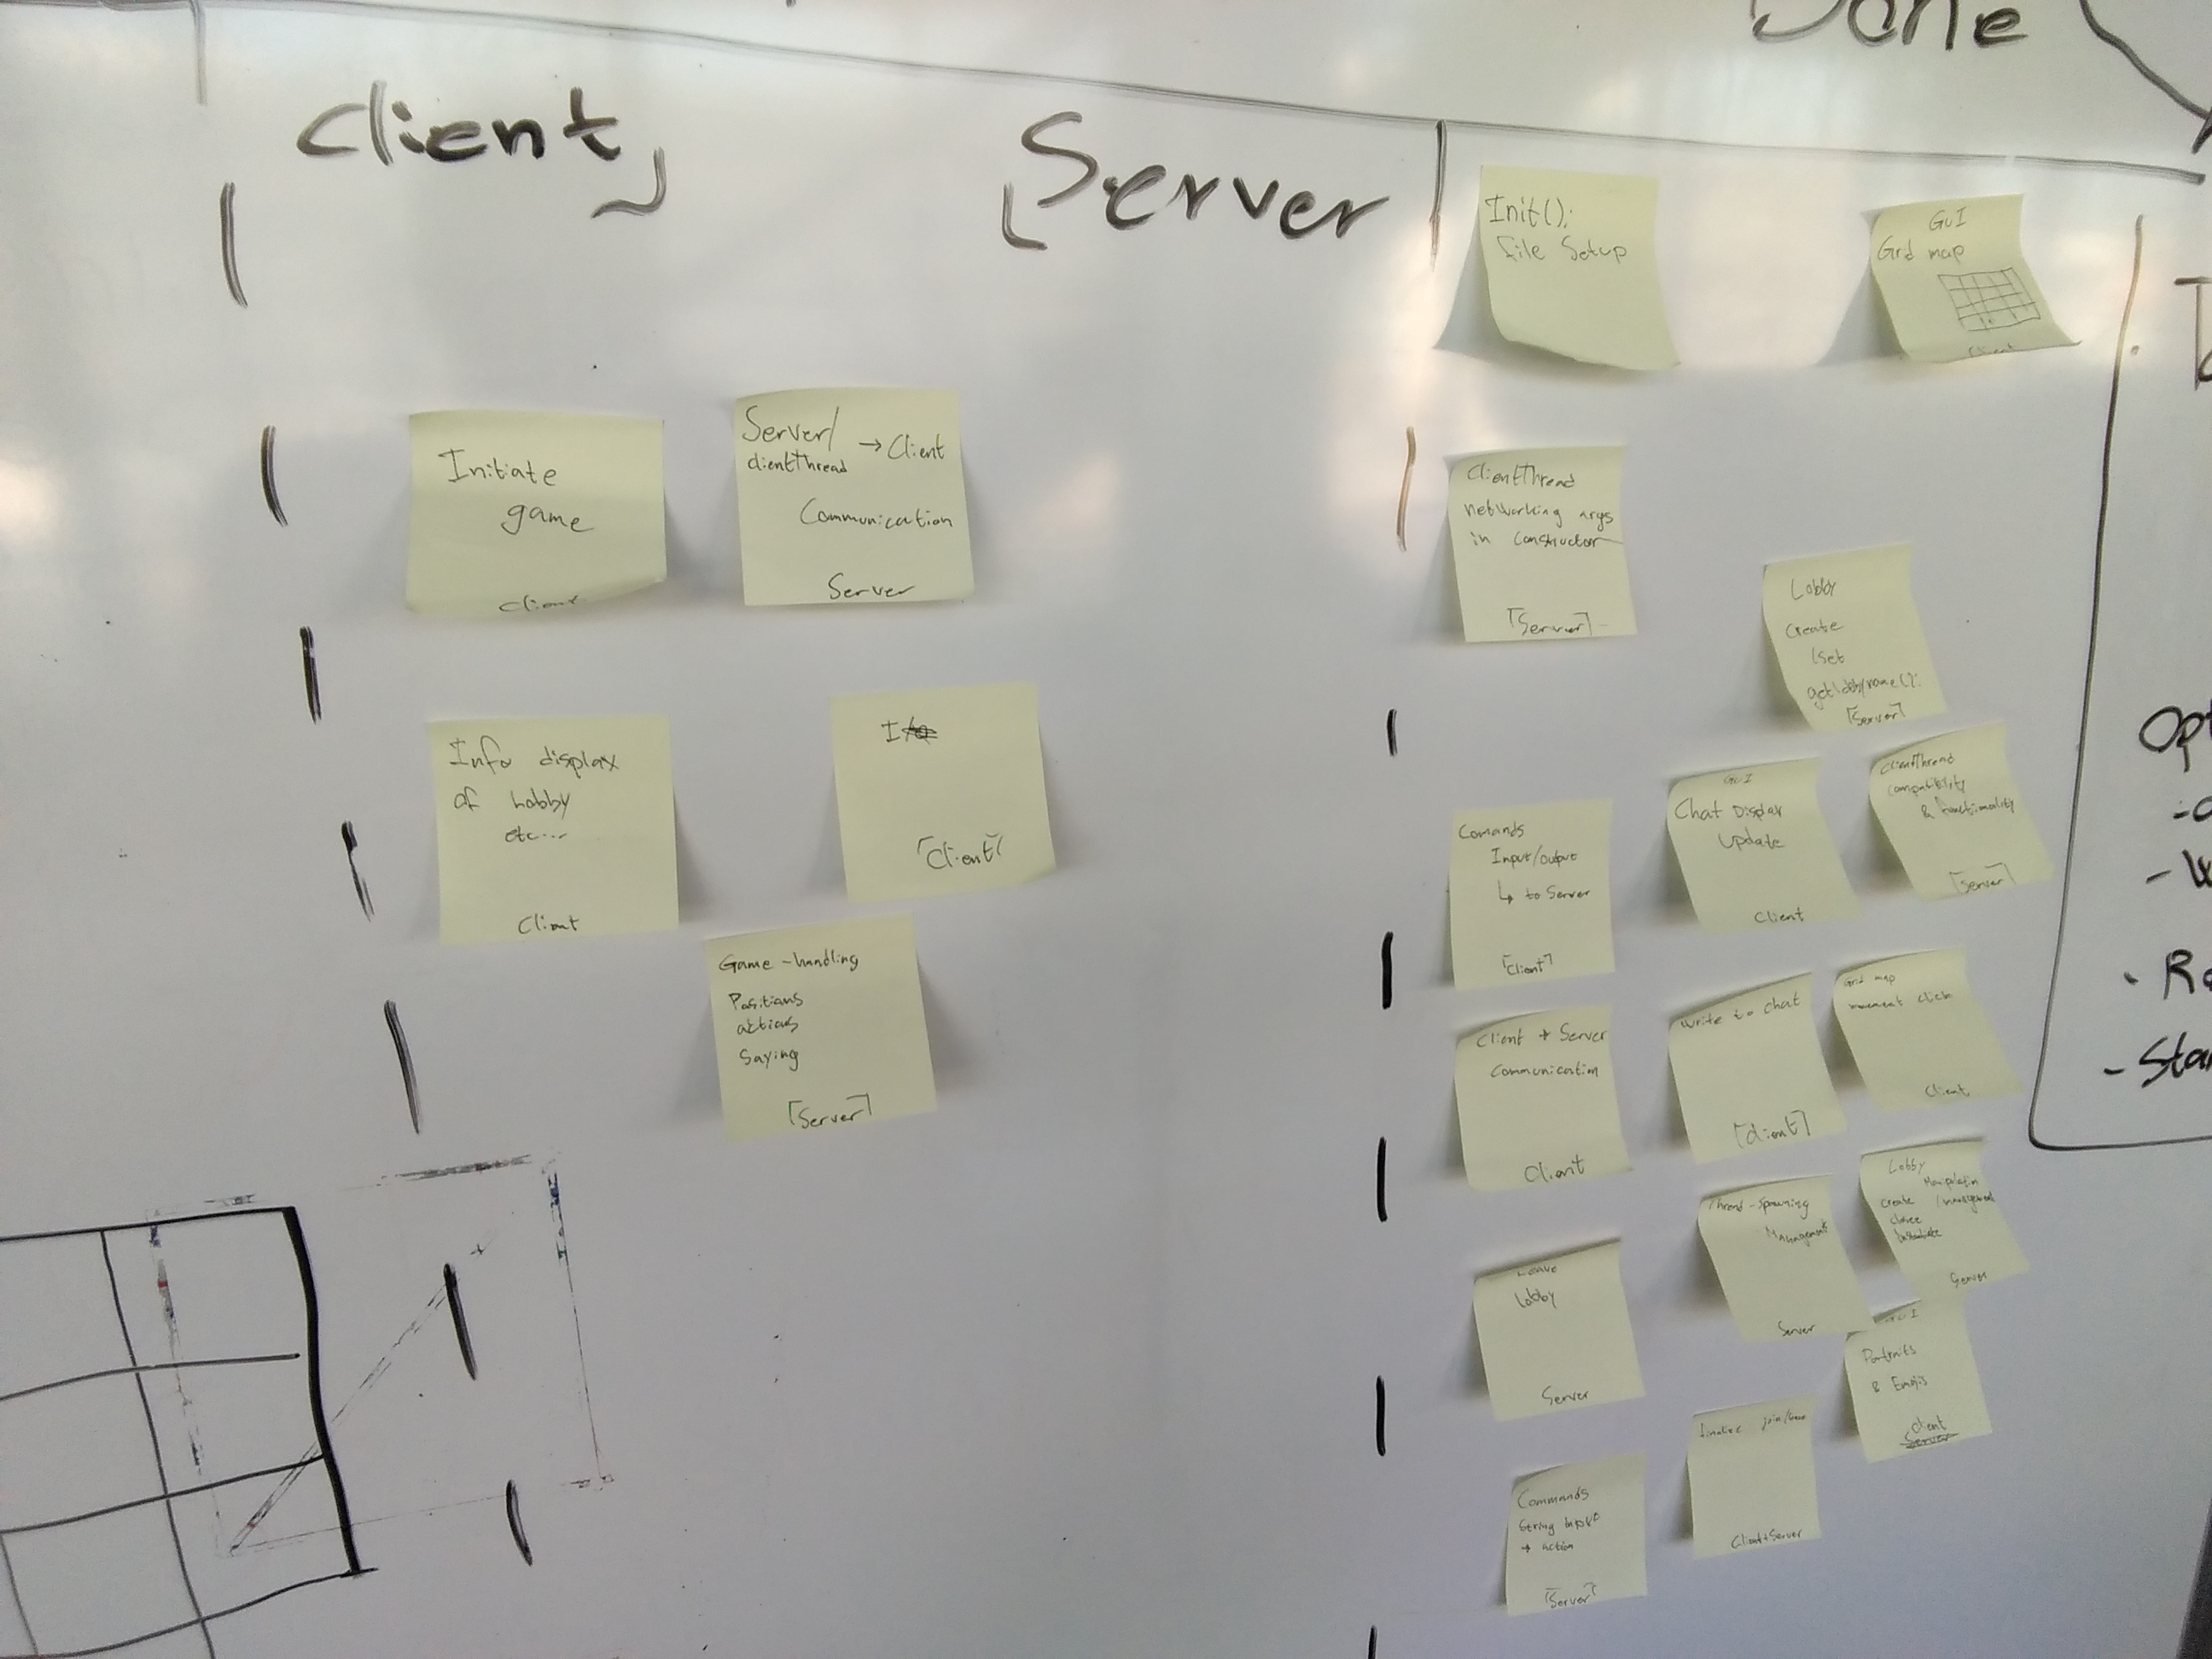 Done
Client
Server
Initiate
game
Client
Server/
clientThread → Client
Communication
Server
Info display
of Lobby
etc...
Client
I
[Client]
Game-handling
Positions
actions
Saying
[Server]
Init():
File Setup
GUI
Grd map
Client
ClientThread
networking args
in constructor
[Server]
Lobby
create
set
getlobbyname():
[Server]
Comands
Input/output
↳ to Server
[Client]
GUI
Chat Display
Update
Client
ClientThread
compatibility
& functionality
[Server]
Client + Server
Communication
Client
Write to chat
[Client]
Grid map
movement click
Client
Leave
Lobby
Server
Thread-Spawning
Management
Server
Lobby
Manipulation
create
Server
GUI
Portraits
& Emojis
Client
Server
Commands
String input
→ action
[Server]
Client+Server
Opt
- W
- Sta